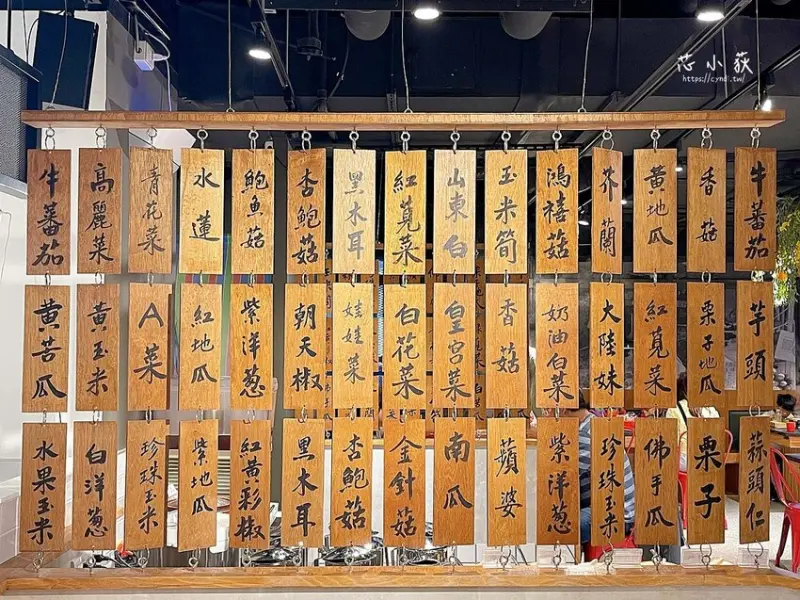 芯小荻
https://cyndi.tw/
牛蕃茄
高麗菜
青花菜
水蓮
鮑魚菇
杏鮑菇
黑木耳
紅莧菜
山東白
玉米筍
鴻禧菇
芥蘭
黃地瓜
香菇
牛蕃茄
黃苦瓜
黃玉米
A菜
紅地瓜
紫洋蔥
朝天椒
娃娃菜
白花菜
皇宮菜
香菇
奶油白菜
大陸妹
紅莧菜
栗子地瓜
芋頭
水果玉米
白洋蔥
珍珠玉米
紫地瓜
紅黃彩椒
黑木耳
杏鮑菇
金針菇
南瓜
蘋婆
紫洋蔥
珍珠玉米
佛手瓜
栗子
蒜頭仁